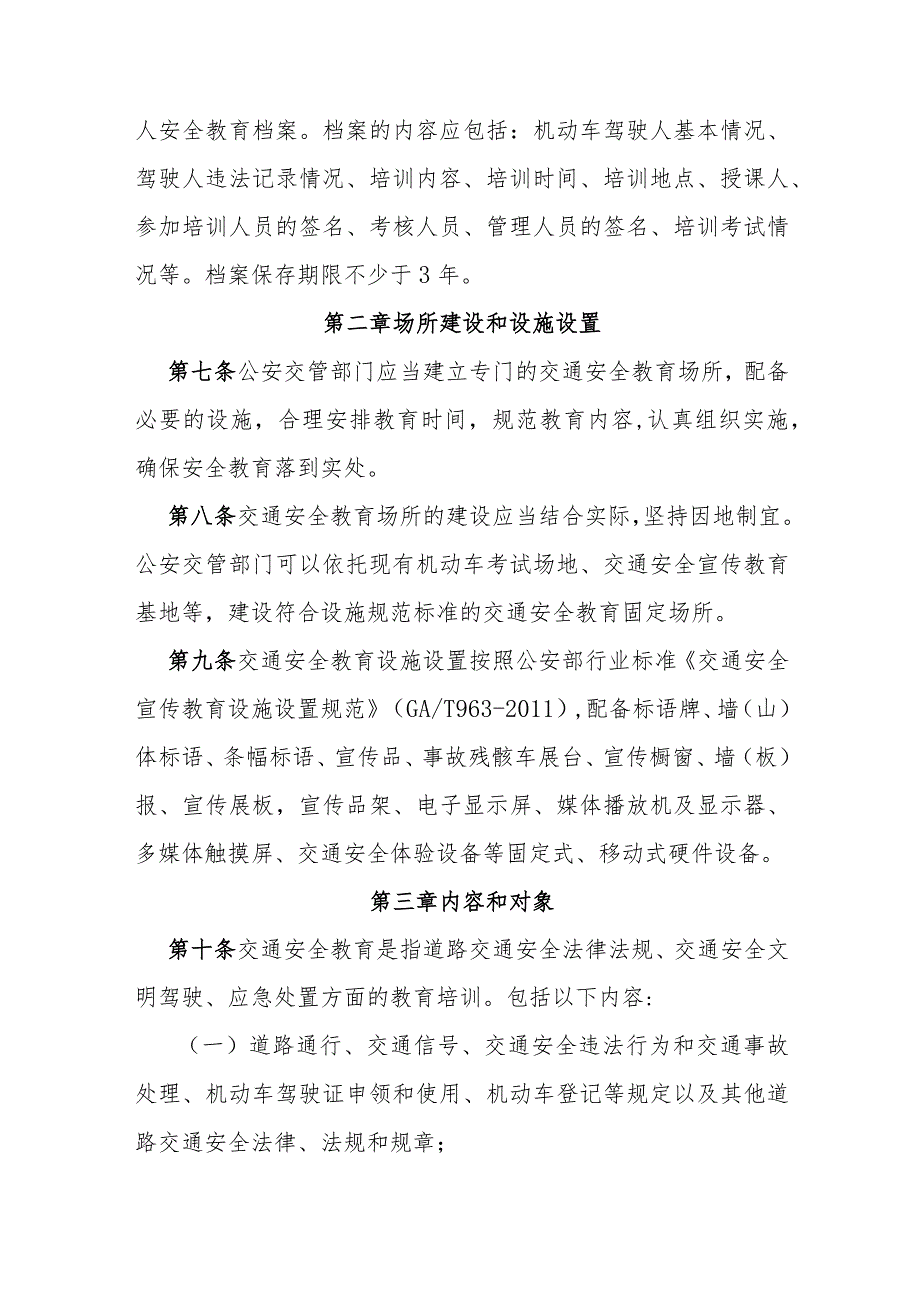 人安全教育档案。档案的内容应包括：机动车驾驶人基本情况、
驾驶人违法记录情况、培训内容、培训时间、培训地点、授课人、
参加培训人员的签名、考核人员、管理人员的签名、培训考试情
况等。档案保存期限不少于 3 年。
第二章场所建设和设施设置
第七条公安交管部门应当建立专门的交通安全教育场所，配备
必要的设施，合理安排教育时间，规范教育内容,认真组织实施，
确保安全教育落到实处。
第八条交通安全教育场所的建设应当结合实际，坚持因地制宜。
公安交管部门可以依托现有机动车考试场地、交通安全宣传教育
基地等，建设符合设施规范标准的交通安全教育固定场所。
第九条交通安全教育设施设置按照公安部行业标准《交通安全
宣传教育设施设置规范》（GA/T963-2011）,配备标语牌、墙（山）
体标语、条幅标语、宣传品、事故残骸车展台、宣传橱窗、墙（板）
报、宣传展板，宣传品架、电子显示屏、媒体播放机及显示器、
多媒体触摸屏、交通安全体验设备等固定式、移动式硬件设备。
第三章内容和对象
第十条交通安全教育是指道路交通安全法律法规、交通安全文
明驾驶、应急处置方面的教育培训。包括以下内容:
（一）道路通行、交通信号、交通安全违法行为和交通事故
处理、机动车驾驶证申领和使用、机动车登记等规定以及其他道
路交通安全法律、法规和规章；